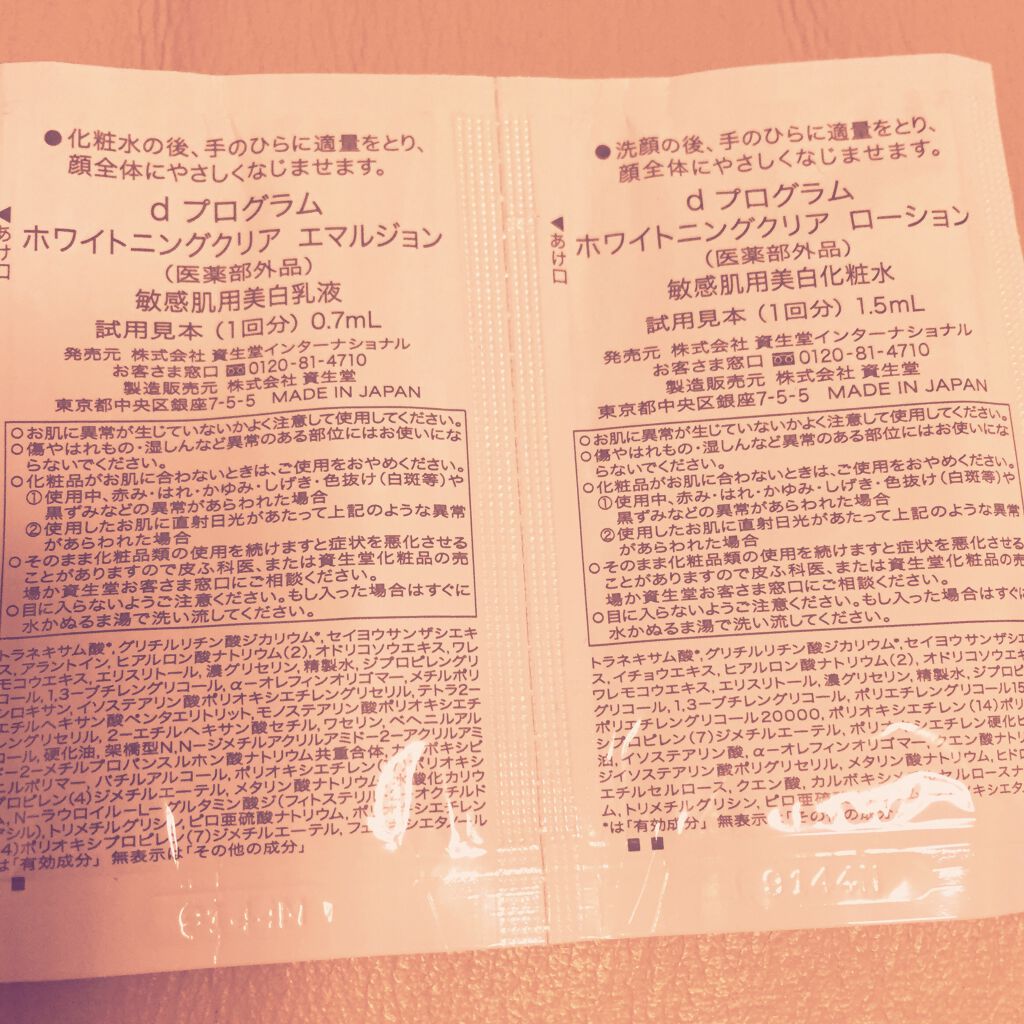 ●化粧水の後、手のひらに適量をとり、
顔全体にやさしくなじませます。
◀あけ口
d プログラム
ホワイトニングクリア エマルジョン
（医薬部外品）
敏感肌用美白乳液
試用見本（1回分）0.7mL
発売元 株式会社 資生堂インターナショナル
お客さま窓口 0120-81-4710
製造販売元 株式会社 資生堂
東京都中央区銀座7-5-5 MADE IN JAPAN
○お肌に異常が生じていないかよく注意して使用してください。
○傷やはれもの・湿しんなど異常のある部位にはお使いにな
らないでください。
○化粧品がお肌に合わないときは、ご使用をおやめください。
①使用中、赤み・はれ・かゆみ・しげき・色抜け（白斑等）や
黒ずみなどの異常があらわれた場合
②使用したお肌に直射日光があたって上記のような異常
があらわれた場合
○そのまま化粧品類の使用を続けますと症状を悪化させる
ことがありますので皮ふ科医、または資生堂化粧品の売
場か資生堂お客さま窓口にご相談ください。
○目に入らないようご注意ください。もし入った場合はすぐに
水かぬるま湯で洗い流してください。
トラネキサム酸*,グリチルリチン酸ジカリウム*,セイヨウサンザシエキ
ス,アラントイン,ヒアルロン酸ナトリウム(2),オドリコソウエキス,ワレ
モコウエキス,エリスリトール,濃グリセリン,精製水,ジプロピレングリ
コール,1,3-ブチレングリコール,α-オレフィンオリゴマー,メチルポリ
シロキサン,イソステアリン酸ポリオキシエチレングリセリル,テトラ2-
エチルヘキサン酸ペンタエリトリット,モノステアリン酸ポリオキシエチ
レングリセリル,2-エチルヘキサン酸セチル,ワセリン,ベヘニルアル
コール,硬化油,架橋型N,N-ジメチルアクリルアミド-2-アクリルアミ
ド-2-メチルプロパンスルホン酸ナトリウム共重合体,カルボキシビ
ニルポリマー,バチルアルコール,ポリオキシエチレン ポリオキシ
プロピレン(4)ジメチルエーテル,メタリン酸ナトリウム, 酸化カリウ
ム,N-ラウロイル-L-グルタミン酸ジ(フィトステリル オクチルド
デシル),トリメチルグリシン,ピロ亜硫酸ナトリウム, シエチレン
(14)ポリオキシプロピレン(7)ジメチルエーテル,フェノキシエタノール
*は「有効成分」 無表示は「その他の成分」
■
●洗顔の後、手のひらに適量をとり、
顔全体にやさしくなじませます。
◀あけ口
d プログラム
ホワイトニングクリア ローション
（医薬部外品）
敏感肌用美白化粧水
試用見本（1回分）1.5mL
発売元 株式会社 資生堂インターナショナル
お客さま窓口 0120-81-4710
製造販売元 株式会社 資生堂
東京都中央区銀座7-5-5 MADE IN JAPAN
○お肌に異常が生じていないかよく注意して使用してください。
○傷やはれもの・湿しんなど異常のある部位にはお使いにな
らないでください。
○化粧品がお肌に合わないときは、ご使用をおやめください。
①使用中、赤み・はれ・かゆみ・しげき・色抜け（白斑等）や
黒ずみなどの異常があらわれた場合
②使用したお肌に直射日光があたって上記のような異常
があらわれた場合
○そのまま化粧品類の使用を続けますと症状を悪化させる
ことがありますので皮ふ科医、または資生堂化粧品の売
場か資生堂お客さま窓口にご相談ください。
○目に入らないようご注意ください。もし入った場合はすぐに
水かぬるま湯で洗い流してください。
トラネキサム酸*,グリチルリチン酸ジカリウム*,セイヨウサンザシエ
ス,イチョウエキス,ヒアルロン酸ナトリウム(2),オドリコソウエキス
ワレモコウエキス,エリスリトール,濃グリセリン,精製水,ジプロピ
グリコール,1,3-ブチレングリコール,ポリエチレングリコール15
ポリエチレングリコール20000,ポリオキシエチレン(14)ポリ
シプロピレン(7)ジメチルエーテル,ポリオキシエチレン硬化ヒ
油,イソステアリン酸,α-オレフィンオリゴマー,クエン酸ナトリ
ジイソステアリン酸ポリグリセリル,メタリン酸ナトリウム,ヒドロ
エチルセルロース,クエン酸,カルボキシメチルセルロースナ
ム,トリメチルグリシン,ピロ亜硫
*は「有効成分」 無表示は「その他の成分」
■ ■